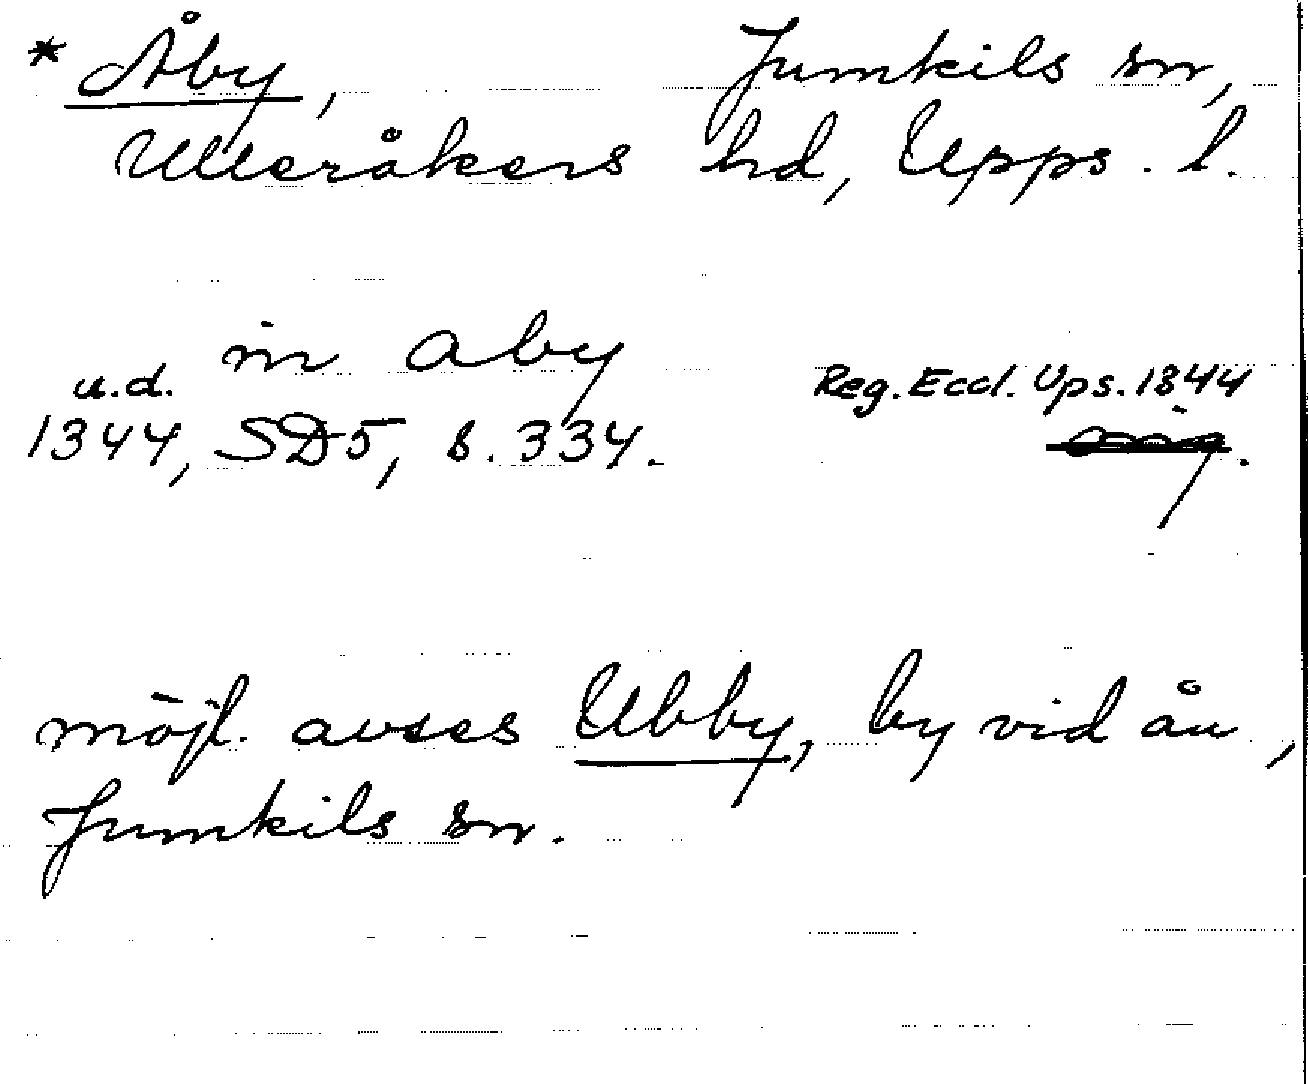 * Åby, Jumkils sn,
Ulleråkers hd, Upps. l.
in aby
u.d. Reg. Eccl. Ups. 1344
1344, SD5, s. 334.
möjl. avses Ubby, by vid ån,
Jumkils sn.